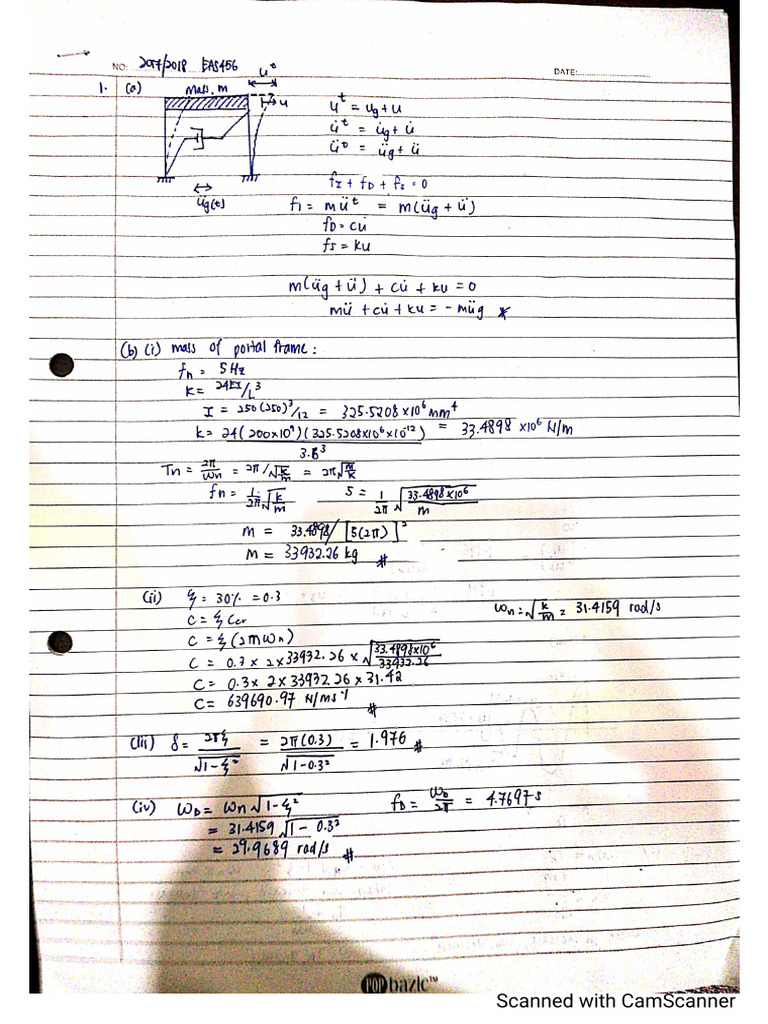 NO: 2017/2018 EAS456
DATE:
1. (a) mass, m uᵗ
u
üg(t)
uᵗ = ug + u
u̇ᵗ = u̇g + u̇
üᵗ = üg + ü
fI + fD + fs = 0
fI = müᵗ = m(üg + ü)
fD = cu̇
fs = ku
m(üg + ü) + cu̇ + ku = 0
mü + cu̇ + ku = - müg *
(b) (i) mass of portal frame:
fn = 5 Hz
K = 24EI/L³
I = 250(250)³/12 = 325.5208×10⁶ mm⁴
k = 24(200×10⁹)(325.5208×10⁶×10⁻¹²) / 3.6³ = 33.4898 ×10⁶ N/m
Tn = 2π/ωn = 2π/√(k/m) = 2π√(m/k)
fn = 1/2π √(k/m) 5 = 1/2π √(33.4898×10⁶/m)
m = 33.4898/[5(2π)]²
m = 33932.26 kg #
(ii) ξ = 30% = 0.3 ωn = √(k/m) = 31.4159 rad/s
C = ξ Ccr
C = ξ (2mωn)
C = 0.3 × 2 × 33932.26 × √(33.4898×10⁶/33932.26)
C = 0.3 × 2 × 33932.26 × 31.42
C = 639690.97 N/ms⁻¹ #
(iii) δ = 2πξ/√(1-ξ²) = 2π(0.3)/√(1-0.3²) = 1.976 #
(iv) ωD = ωn √(1-ξ²) fD = ωD/2π = 4.7697 s
= 31.4159 √(1 - 0.3²)
= 29.9689 rad/s #
POP bazic™
Scanned with CamScanner